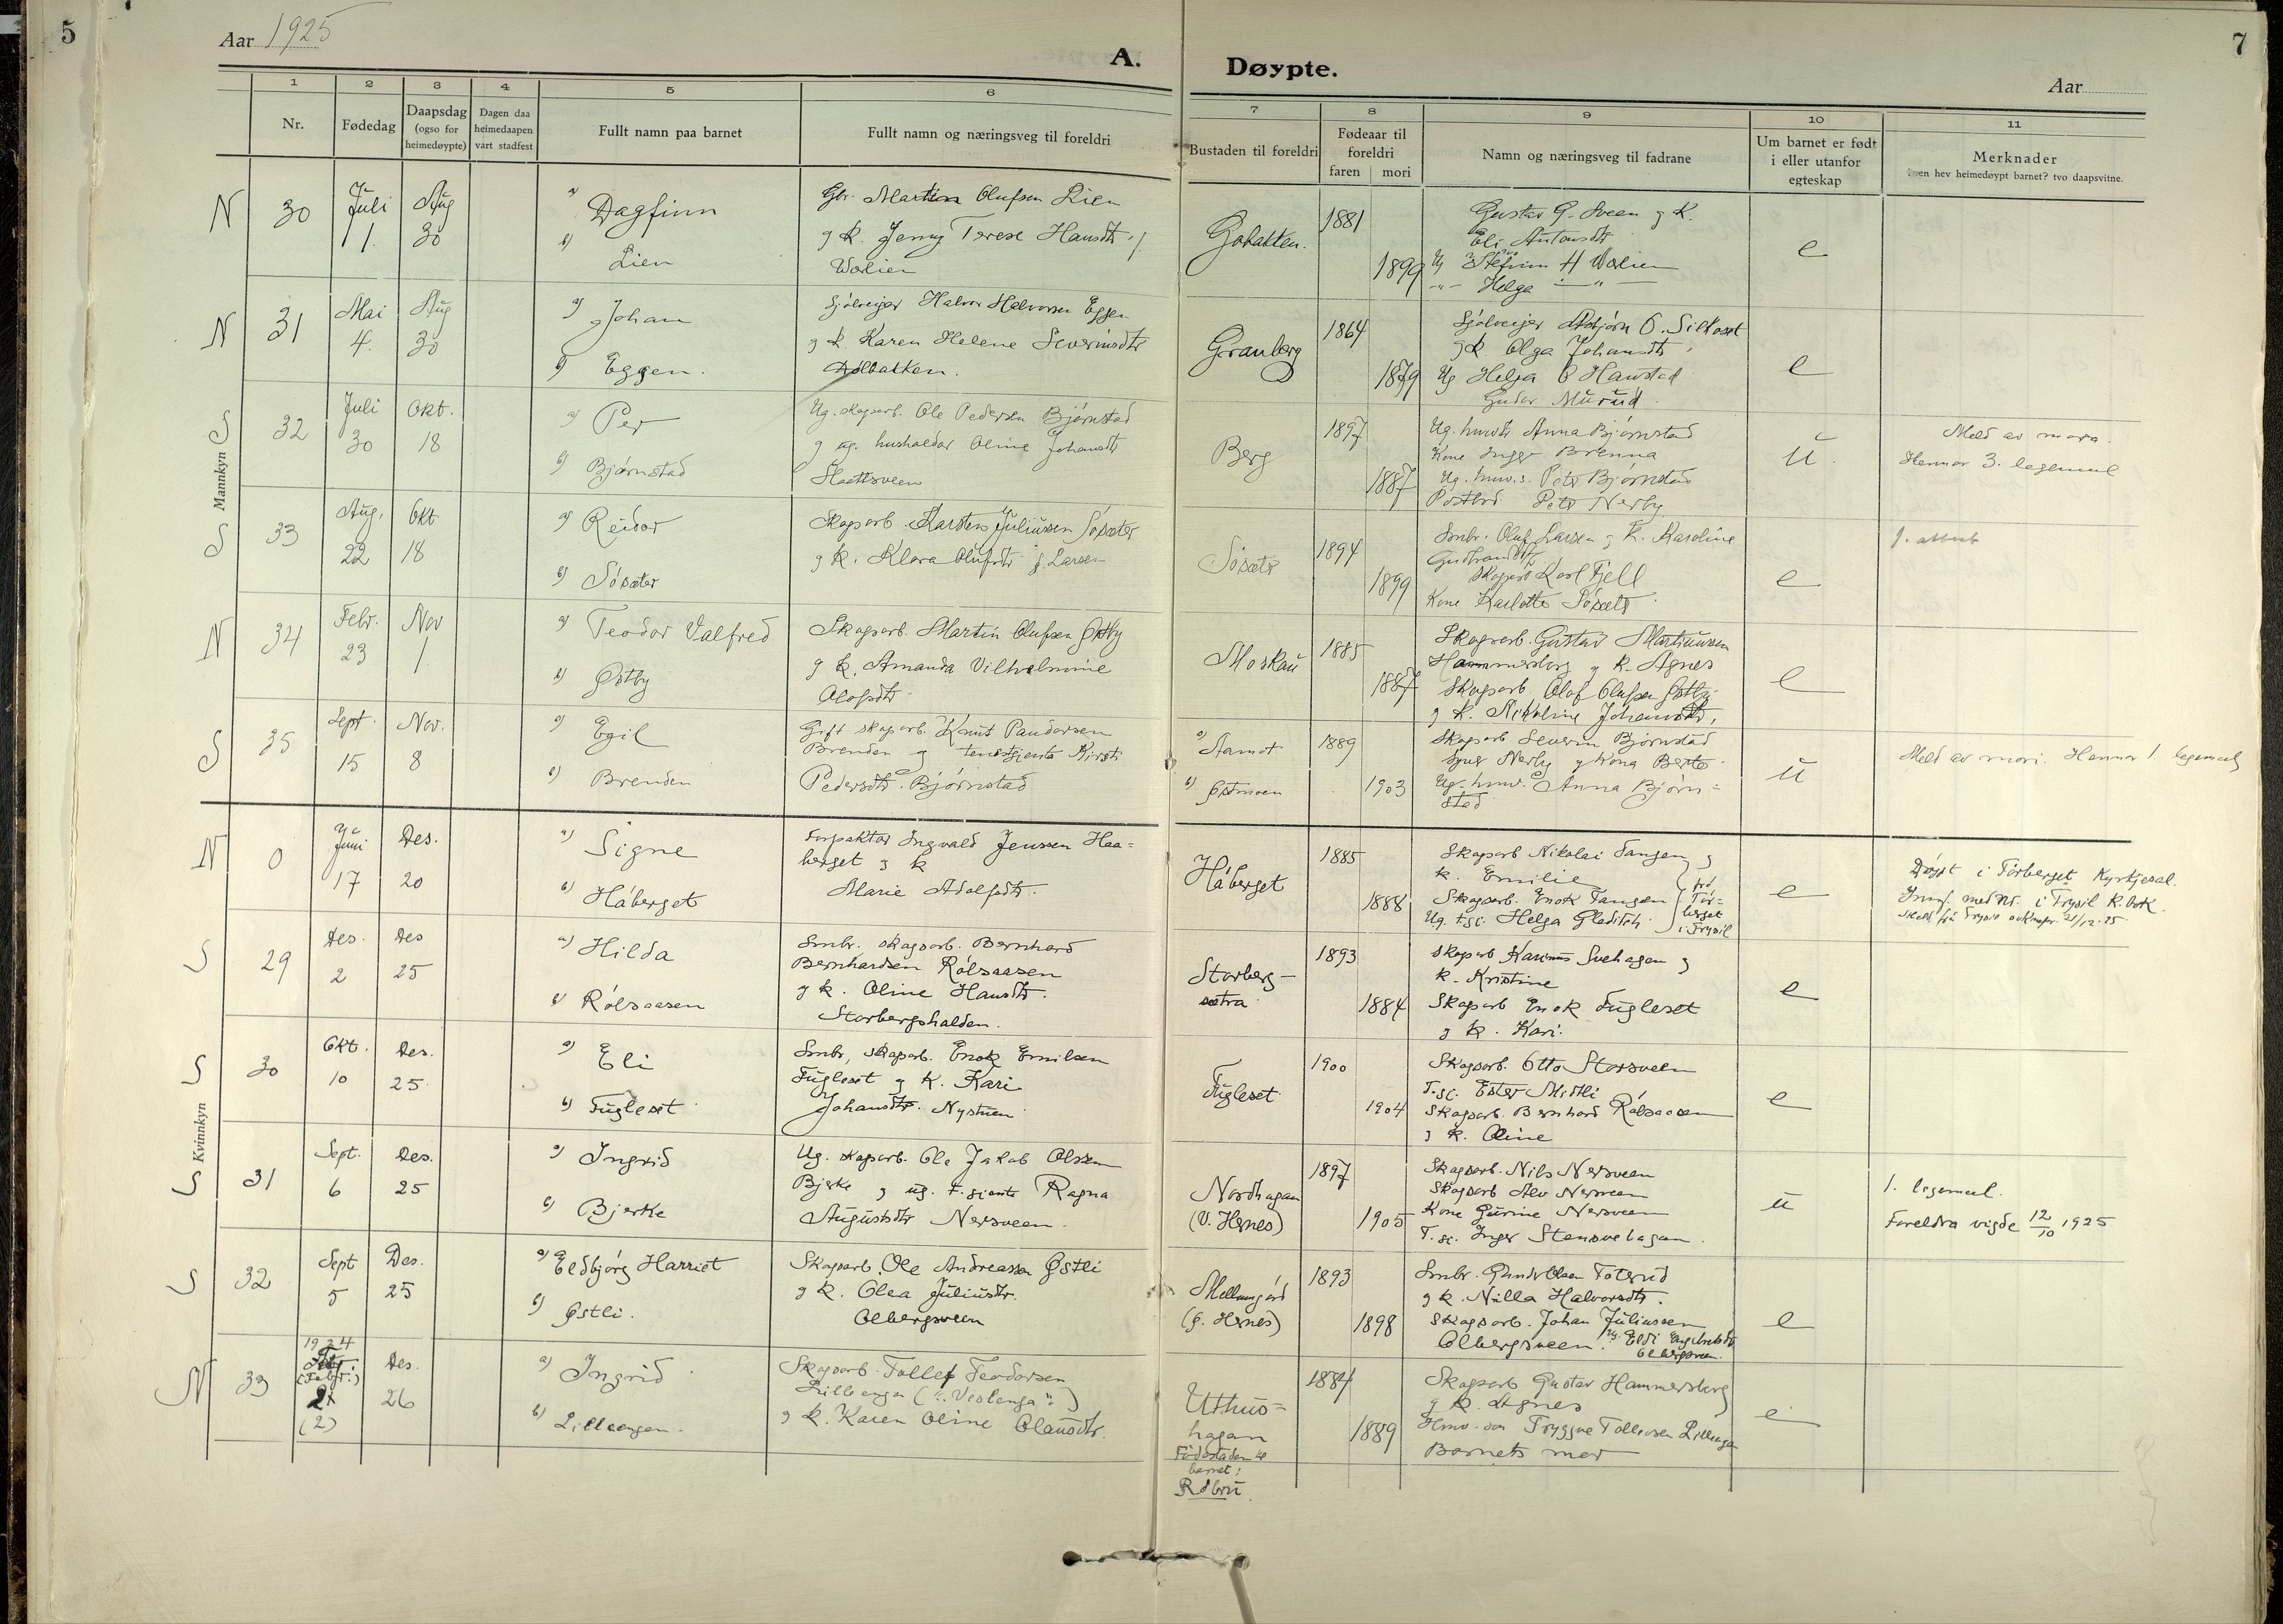 5
Aar 1925
A.
Døypte.
Aar
7
1
2
3
4
5
6
7
8
9
10
11
Nr.
Fødedag
Daapsdag
(ogso for
heimedøypte)
Dagen daa
heimedaapen
vart stadfest
Fullt namn paa barnet
Fullt namn og næringsveg til foreldri
Bustaden til foreldri
Fødeaar til
foreldri
faren mori
Namn og næringsveg til fadrane
Um barnet er født
i eller utanfor
egteskap
Merknader
hev heimedøypt barnet? tvo daapsvitne.
Mannkyn
N 30
Juli
1.
Aug
30
a) Dagfinn
b) Lien
Gbr. Martin Olufsen Lien
g k. Jenny Terese Hansdtr
Wolien
1881
1899
Gustav G. Sveen g k.
Eli Antonsdtr
Ug Stefinn H Wolien
-"- Helga -"-
e
N 31
Mai
4.
Aug
30
a) Johan
b) Eggen.
Sjølveigar Halvor Halvorsen Eggen
g k. Karen Helene Severinsdtr
Granberg
1864
1879
Sjølveigar Asbjørn O. Silkoset
g k. Olga Johansdtr
Ug Helga O Hanstad
e
S 32
Juli
30
Okt.
18
a) Per
b) Bjørnstad
Ug. skogarb. Ole Pedersen Bjørnstad
g ug. husholdar Oline Johansdtr
Haattsveen
Berg
1897
1887
Ug. husdtr Anna Bjørnstad
Kone Inger Brenna
Ug. hmv.s. Petr Bjørnstad
Postbod Petr Nerby
ü
Meld av mora.
Hennar 3. legemaal
S 33
Aug.
22
Okt
18
a) Reidar
b) Søsæter
Skogarb. Karsten Juliussen Søsæter
g k. Klara Olufsdtr f. Larsen
Søsætr
1894
1899
Smbr. Oluf Larsen g k. Karoline
Gudbrandsdtr
Skogarb Karl Fjell
Kone Karlotte Søsætr
e
f. attest
N 34
Febr.
23
Nov
1
a) Teodor Valfred
b) Østby
Skogarb. Martin Olufsen Østby
g k. Amanda Vilhelmine
Olofsdtr
Moskau
1885
1887
Skogarb. Gustav Martinussen
Hammersborg g k. Agnes
Skogarb. Olof Olufsen Østby
g k. Nikoline Johansdtr,
e
S 35
Sept.
15
Nov.
8
a) Egil
b) Brenden
Gift skogarb. Knut Paudersen
Brenden g tenestgjenta Kirsti
Pedersdtr. Bjørnstad
a) Aamot
b) Østmoen
1889
1903
Skogarb Severin Bjørnstad
Syver Nerby g kona Berte
Ug. hmv. Anna Bjørn=
stad
ü
Meld av mori. Hennar 1. legemaal
Kvinnkyn
N 0
Juni
17
Des.
20
a) Signe
b) Håberget
Forpaktar Ingvald Jensen Haa=
berget g k
Marie Adolfsdtr.
Håberget
1885
1888
Skogarb Nikolai Tangen g
k. Emilie
Skogarb. Enok Tangen
Ug. t.gj. Helga Gleditch
frå
Tør=
berget
i Trysil
e
Døypt i Tørberget Kyrkjesal.
Innf. med nr. i Trysil K.bok.
Meld. frå Trysil soknepr. 21/12-25
S 29
Des.
2
Des
25
a) Hilda
b) Rølsaasen
Smbr. skogarb. Bernhard
Bernhardsen Rølsaasen
g k. Oline Hansdtr.
Storbergshalden.
Storberg-
sætra
1893
1884
Skogarb Karinus Svehagen g
k. Kristine
Skogarb Enok Fugleset
g k. Kari.
e
S 30
Okt.
10
Des.
25
a) Eli
b) Fugleset
Smbr, skogarb. Enok Emilsen
Fugleset g k. Kari
Johansdtr. Nystuen
Fugleset
1900
1904
Skogarb. Otto Storsveen
T.gj. Ester Midtli
Skogarb. Bernhard Rølsaasen
g k. Oline
e
S 31
Sept.
6
Des.
25
a) Ingrid
b) Bjerke
Ug. skogarb. Ole Jakob Olssen
Bjerke g ug. t.gjente Ragna
Augustsdtr Nersveen.
Nordhagan
(V. Hernes)
1897
1905
Skogarb. Nils Nersveen
Skogarb Alv Nersveen
Kone Gurine Nersveen
T.gj. Inger Stensvehagan.
ü
1. legemaal.
Foreldra vigde 12/10 1925
S 32
Sept
5
Des.
25
a) Eldbjørg Harriet
b) Østli.
Skogarb. Ole Andreassen Østli
g k. Olea Juliusdtr.
Olbergsveen
Mellumgård
(ø. Hernes)
1893
1898
Smbr. Gundr Olsen Toterud
g k. Nilla Halvorsdtr.
Skogarb. Johan Juliussen
Olbergsveen. Ug. Eldi Engebretsdtr
Olbergsveen.
e
N 33
1924
(Febr.)
2
(2)
Des.
26
a) Ingrid
b) Lilleengen.
Skogarb. Tollef Teodorsen
Lilleengen ("Veslenga")
g k. Karen Oline Olausdtr.
Uthus-
hagan
Fødestaden til
barnet:
Rdbru
1884
1889
Skogarb Gustav Hammersborg
g k. Agnes
Hmv. son Tryggve Tollevsen Lillengen
Barnets mor
e